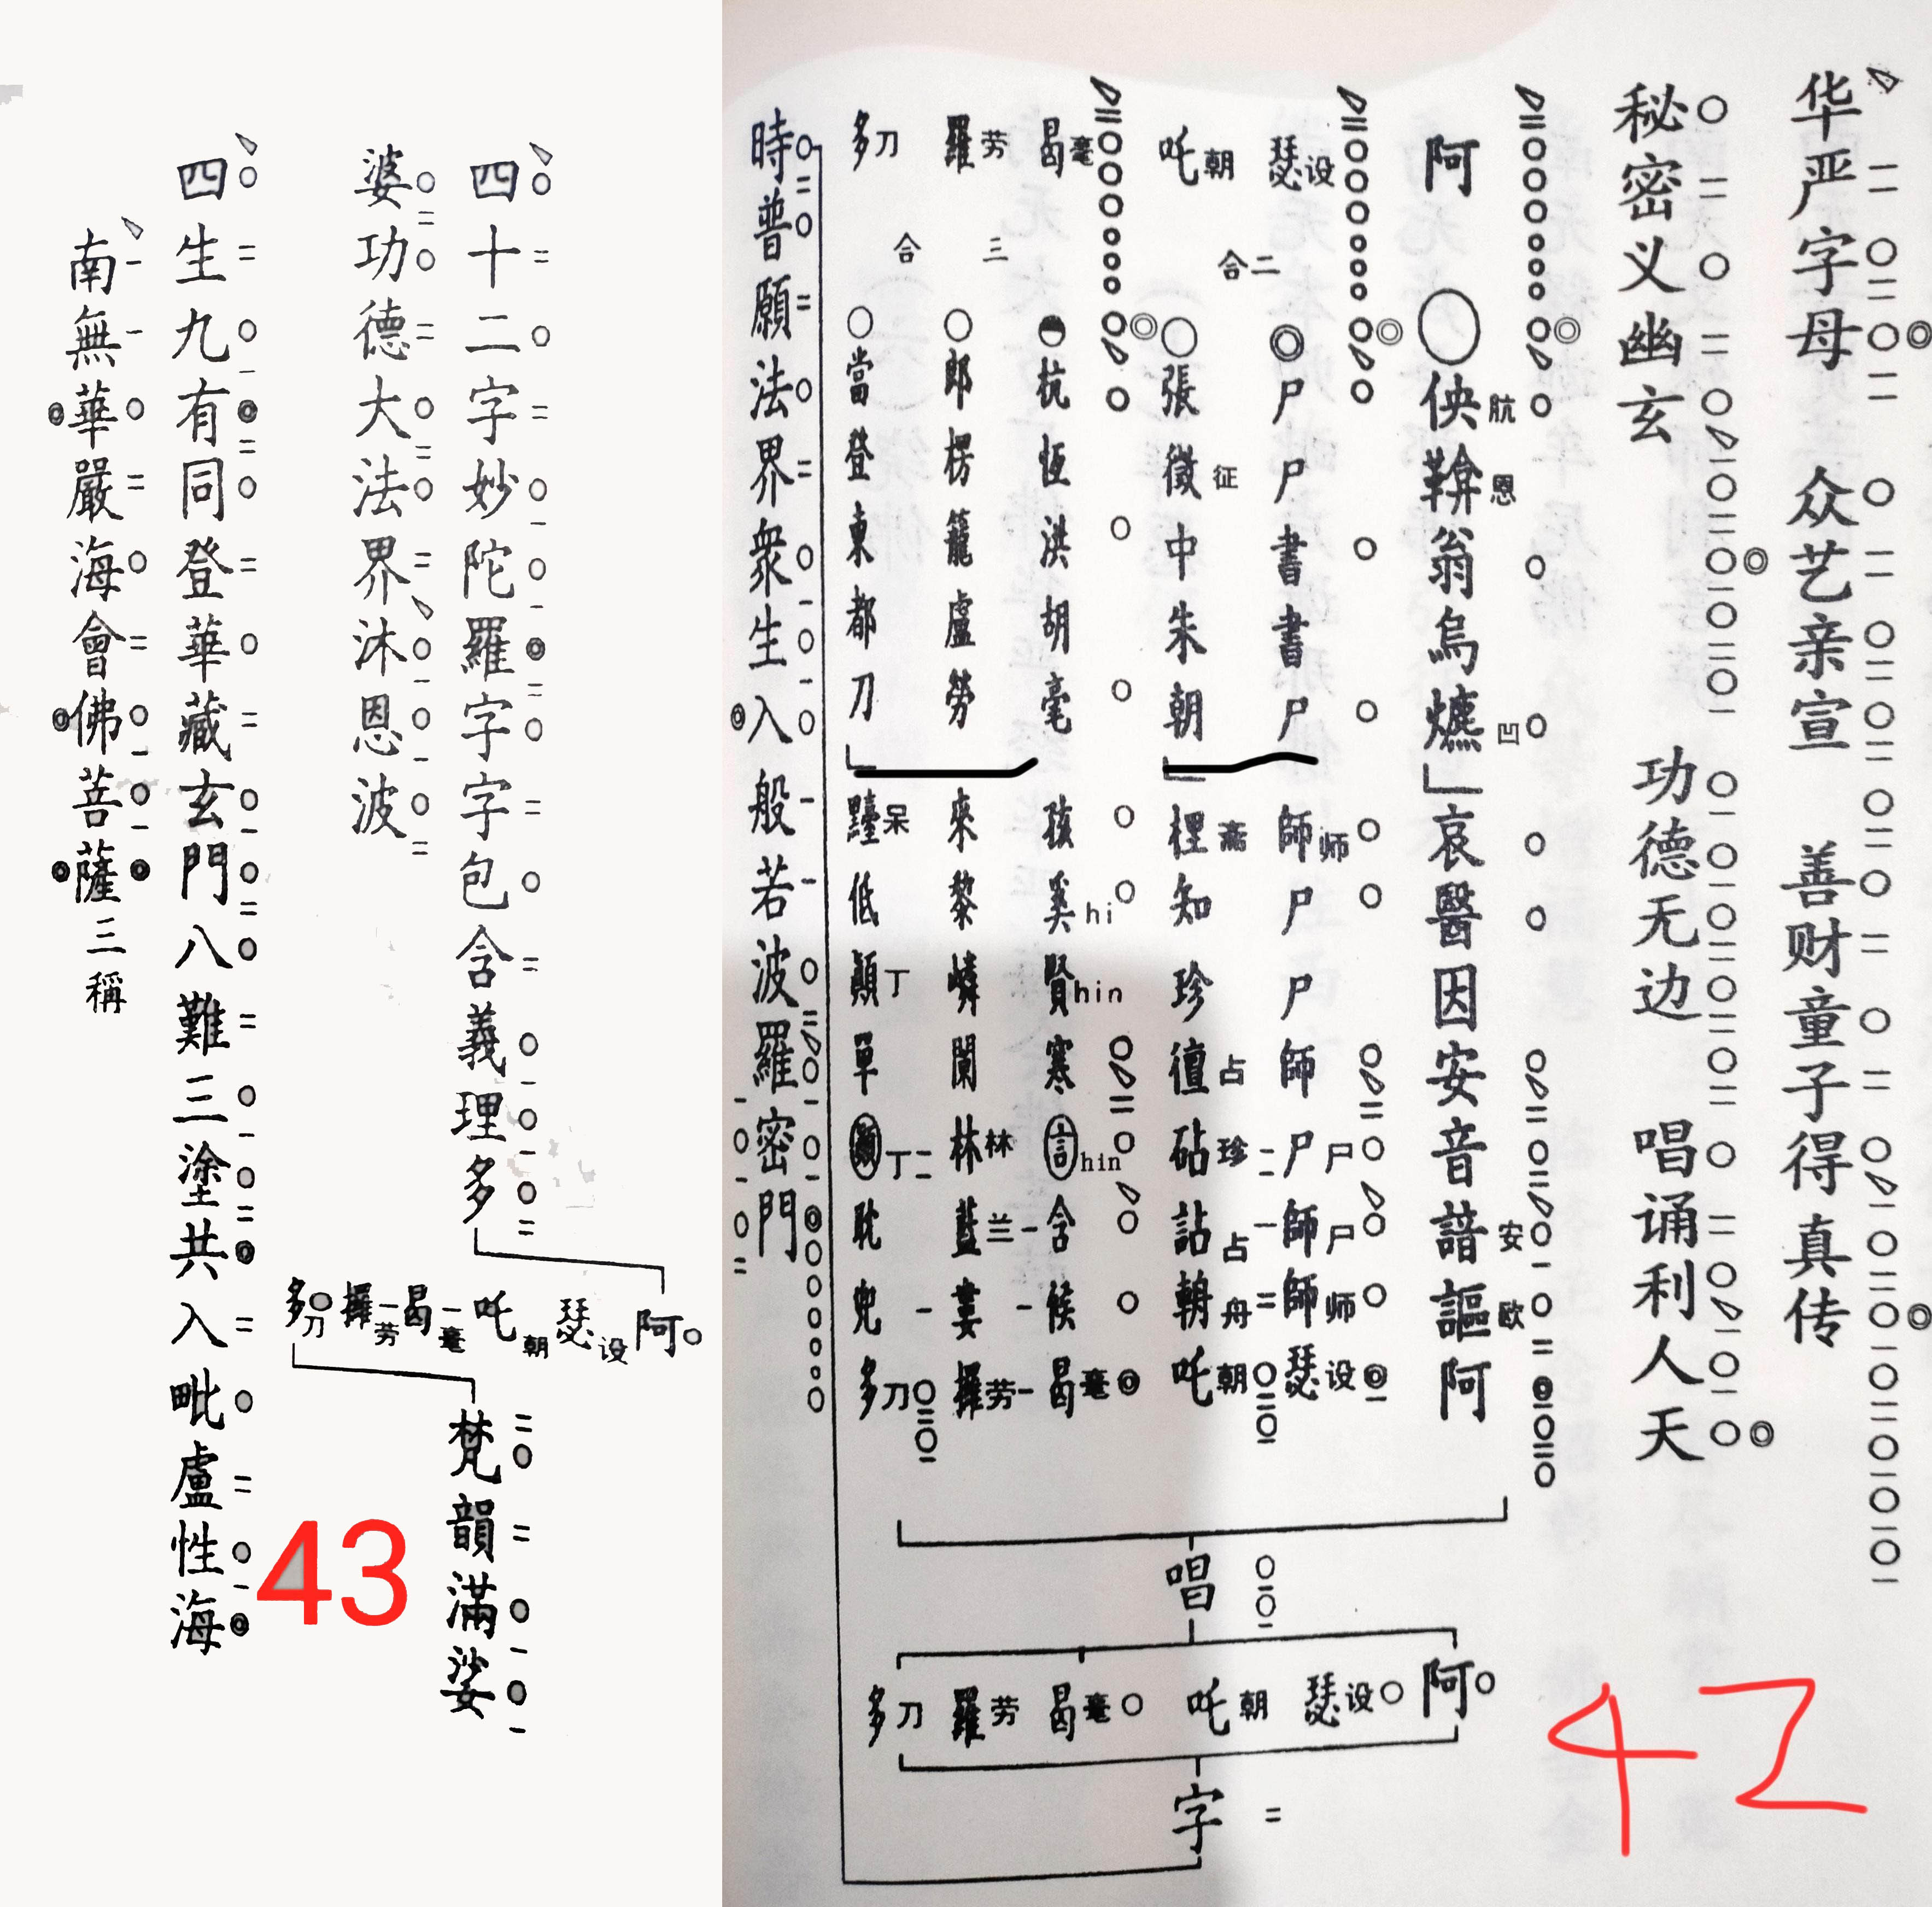 华严字母 众艺亲宣 善财童子得真传
秘密义幽玄 功德无边 唱诵利人天
阿 佒䩑翁烏爊 哀醫因安音諳謳阿
肮 恩 凹 安 欧
瑟设 二合 尸尸書書尸 師师尸尸師尸尸師尸師师瑟设
吒朝 張徵征中朱朝 檉斋知珍邅占砧珍詀占輖舟吒朝
曷毫 三合 杭恆洪胡毫 孩奚hi賢hin寒hin含候曷毫
羅劳 郎楞籠盧勞 來黎嶙闌林林藍兰婁攞劳
多刀 當登東都刀 䵣呆低顛丁單丁耽兜多刀
唱
阿 瑟设 吒朝 曷毫 羅劳 多刀
字
時普願法界衆生入般若波羅密門
42
四十二字妙陀羅字字包含義理多
阿 瑟设 吒朝 曷毫 攞劳 多刀
梵韻滿娑
婆功德大法界沐恩波
四生九有同登華藏玄門八難三塗共入毗盧性海
南無華嚴海會佛菩薩三稱
43